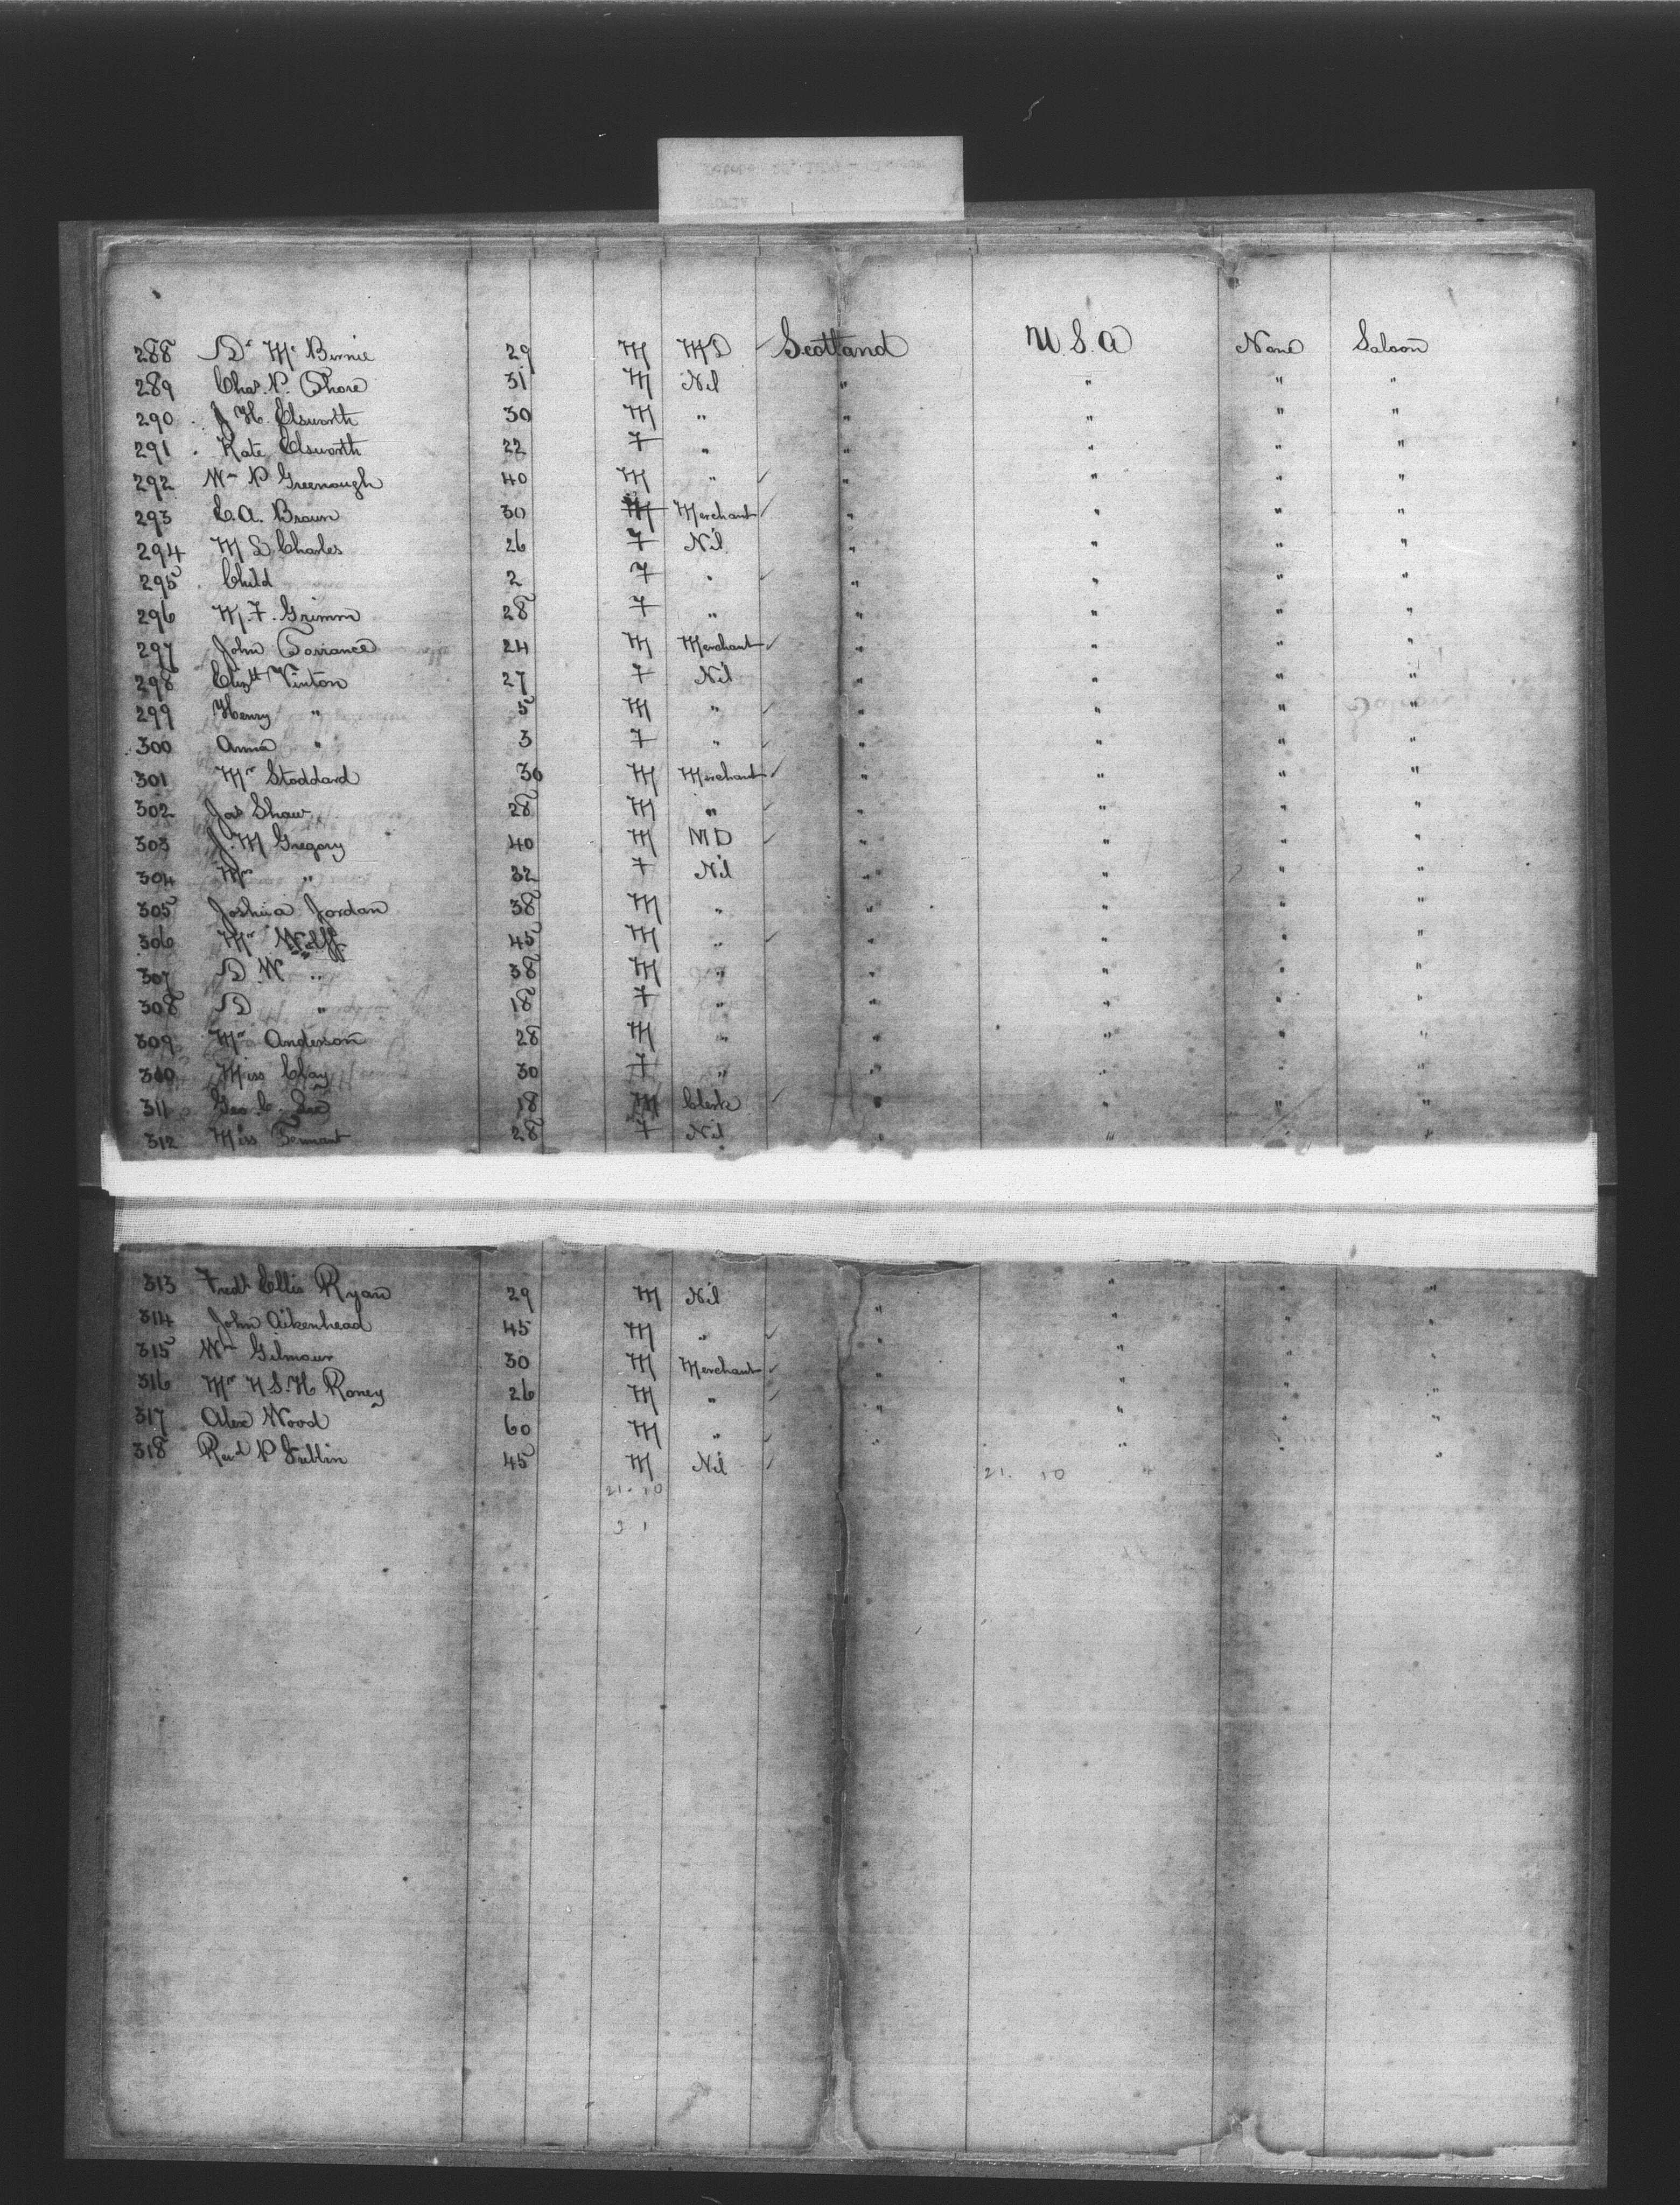 288 Dr Mc Binnie 29 M MD Scotland U.S.A None Saloon
289 Chas. P. Thore 31 M Nil " " " "
290 J H. Elsworth 30 M " " " " "
291 Kate Elsworth 22 F " " " " "
292 Wm P Greenough 40 M " " " " "
293 E.A. Braun 30 M Merchant " " " "
294 M S Charles 26 F Nil " " " "
295 Child 2 F " " " " "
296 M.F. Grimm 28 F " " " " "
297 John Torrance 24 M Merchant " " " "
298 Elizth Vinton 27 F Nil " " " "
299 Henry " 5 M " " " " "
300 Anna " 3 F " " " " "
301 Mr Stoddard 30 M Merchant " " " "
302 Jas Shaw 28 M " " " " "
303 J. M Gregory 40 M MD " " " "
304 Mrs " 32 F Nil " " " "
305 Joshua Jordan 38 M " " " " "
306 Mr Wolff 45 M " " " " "
307 D. W " 38 M " " " " "
308 D " 18 F " " " " "
309 Mr Anderson 28 M " " " " "
310 Miss Clay 30 F " " " " "
311 Geo C. Lee 18 M Clerk " " " "
312 Miss Tennant 28 F Nil " " "
313 Fredk Ellis Ryan 29 M Nil " " " "
314 John Aikenhead 45 M " " " " "
315 Wm Gilmour 30 M Merchant " " " "
316 Mr H S.H Roney 26 M " " " " "
317 Alex Wood 60 M " " " " "
318 Revd P 45 M Nil
21. 10 21. 10
31